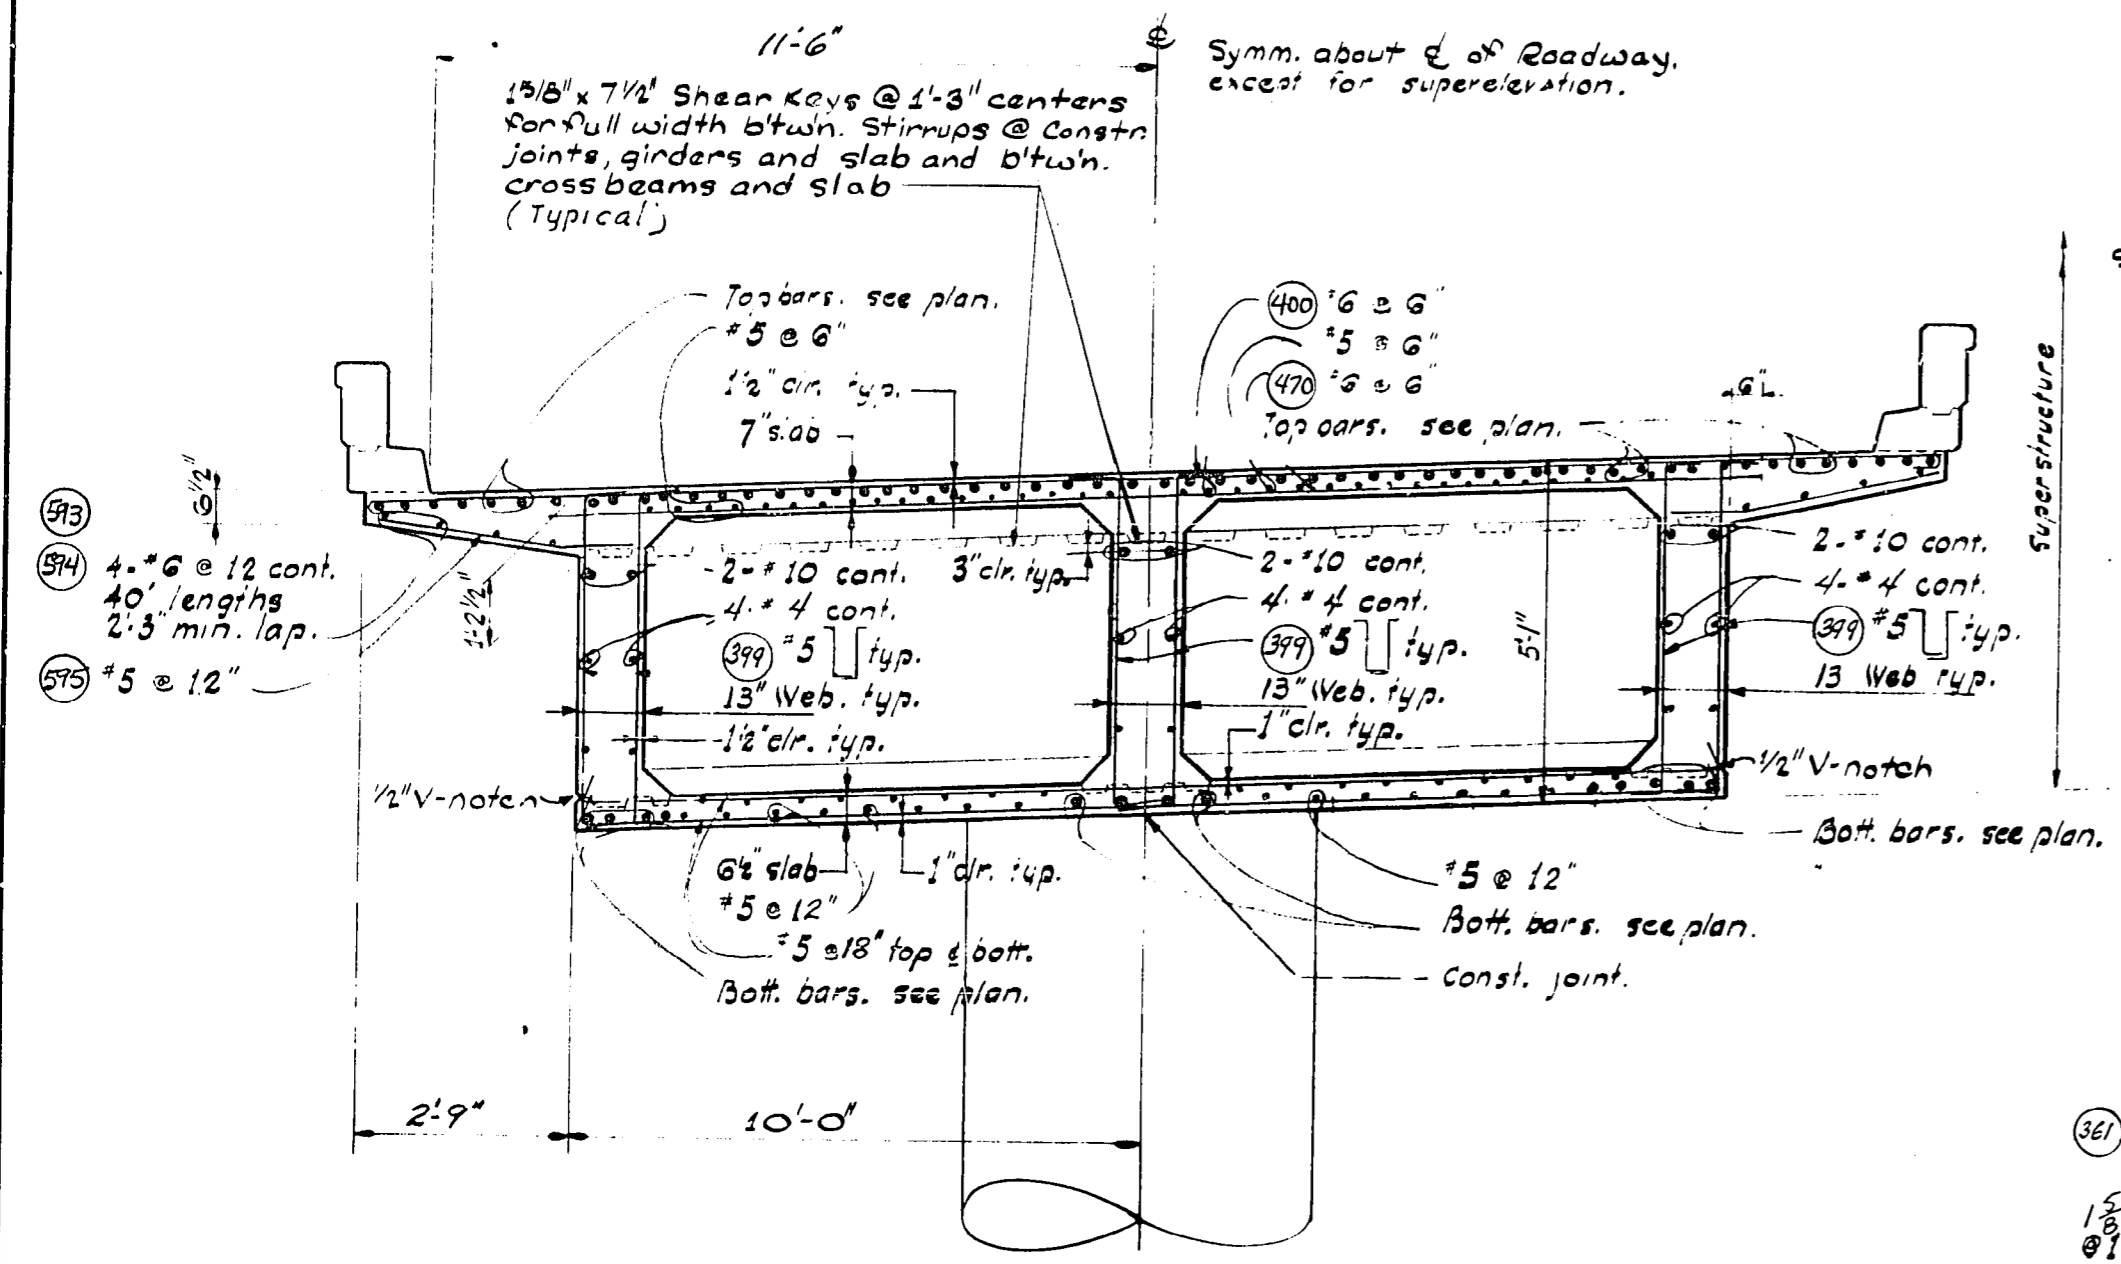 11'-6"
℄ Symm. about ℄ of Roadway,
except for superelevation.
1 5/8" x 7 1/2" Shear Keys @ 1'-3" centers
for full width b'tw'n. Stirrups @ Constr.
joints, girders and slab and b'tw'n.
cross beams and slab
(Typical)
Top bars. see plan.
#5 @ 6"
1 1/2" clr. typ.
7" slab
400 #6 @ 6"
#5 @ 6"
470 #6 @ 6"
Top bars. see plan.
6"
Superstructure
6 1/2"
593
594 4-#6 @ 12 cont.
40' lengths
2'-3" min. lap.
595 #5 @ 12"
1'-2 1/2"
2-#10 cont.
4-#4 cont.
399 #5 typ.
13" Web. typ.
1 1/2" clr. typ.
3" clr. typ.
2-#10 cont.
4-#4 cont.
399 #5 typ.
13" Web. typ.
1" clr. typ.
5'-1"
2-#10 cont.
4-#4 cont.
399 #5 typ.
13 Web typ.
1/2" V-notch
1/2" V-notch
Bott. bars. see plan.
6 1/2" slab
1" clr. typ.
#5 @ 12"
#5 @ 18" top & bott.
Bott. bars. see plan.
#5 @ 12"
Bott. bars. see plan.
Const. joint.
2'-9"
10'-0"
361
1 5/8
@ 1